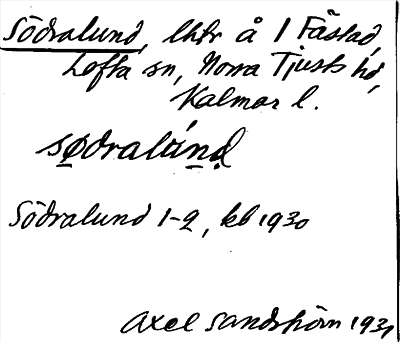 Södralund, lhtr å 1 Fästad,
Lofta sn, Norra Tjusts hd,
Kalmar l.
sødralúnḍ
Södralund 1-2, kb 1930
Axel Sandström